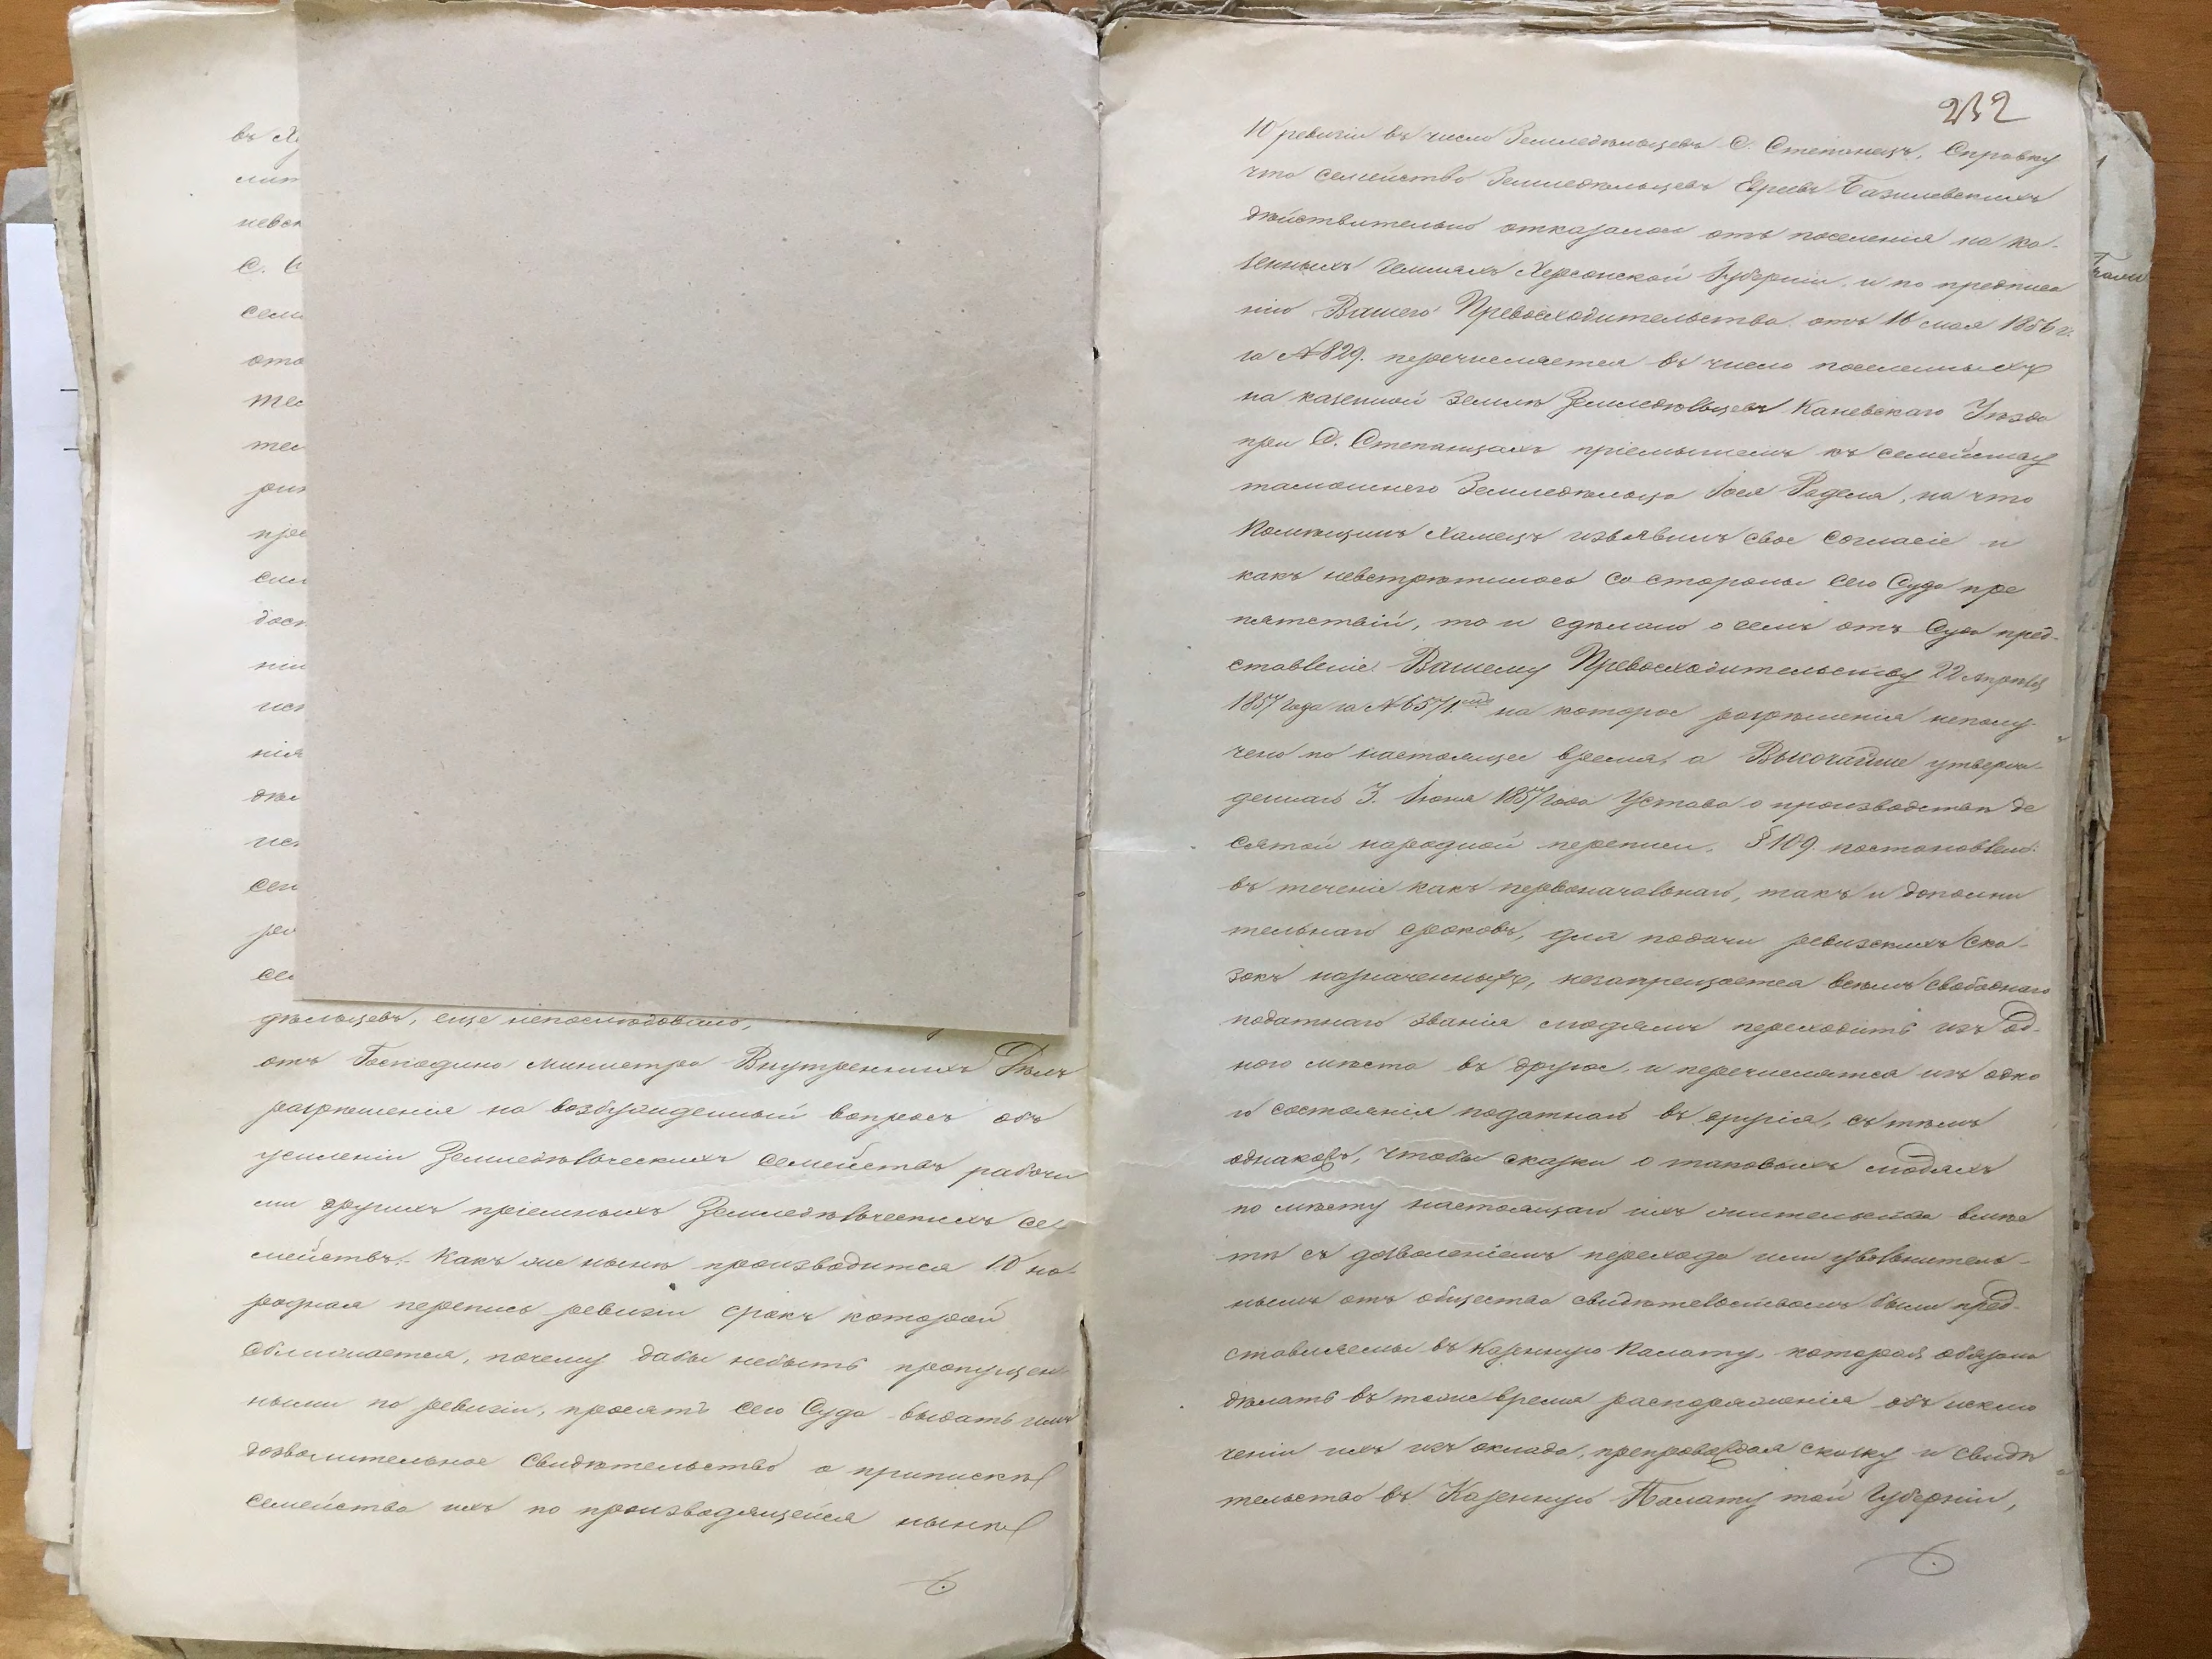 въ Хе
лит
невск
С. С
сем
отс
Мес
тел
рит
прес
сил
дост
ніи
исп
нія
дѣл
ис
сем
рев
сел
дѣльцевъ, еще непослѣдовало,
отъ Господина Министра Внутреннихъ Дѣлъ
разрѣшенія на возбужденный вопросъ объ
усиленіи Земледѣльческихъ семействъ рабочи
ми другихъ пріемныхъ Земледѣльческихъ се
мействъ. Какъ же нынѣ производится 10 на-
родная перепись ревизіи срокъ которой
сближается, почему дабы небыть пропущен
ными по ревизіи, просятъ сего Суда выдать имъ
дозволительное свидѣтельство о припискѣ
семейства ихъ по производящейся нынѣ
232
10 ревизіи въ число Земледѣльцевъ С. Степанецъ, Справку
что семейство Земледѣльцевъ Базилевскихъ
дѣйствительно отказалось отъ поселенія на ка-
зенныхъ земляхъ Херсонской Губерніи, и по предписа
нію Вашего Превосходительства отъ 16 мая 1856 г.
за №829. перечисляется въ число поселенныхъ
на казенной землѣ Земледѣльцевъ Каневскаго Уѣзда
при С. Степанцахъ пріемышемъ къ семейству
тамошнего Земледѣльца Іося Раделя, на что
Помѣщикъ изъявилъ свое согласіе и
какъ невстрѣтилось со стороны сего Суда пре
пятствій, то и сдѣлано о семъ отъ Суда пред-
ставленіе Вашему Превосходительству 22 Апрѣля
1857 года за №6571. на которое разрѣшенія неполу-
чено по настоящее время, а Высочайше утверж-
деннаго 3. Іюня 1857 года Устава о производствѣ де
сятой народной переписи. §109. постановлено:
въ теченіе какъ первоначальнаго, такъ и дополни
тельнаго сроковъ, для подачи ревизскихъ ска-
зокъ назначенныхъ, незапрещается всѣмъ свободнаго
податнаго званія людямъ переходить изъ од-
ного мѣста въ другое, и перечислятся изъ одно
го состоянія податнаго въ другія, съ тѣмъ
однакожъ, чтобы сказки о таковыхъ людяхъ
по мѣсту настоящаго ихъ жительства вмѣс
тѣ съ дозволеніемъ перехода или увольнитель-
нымъ отъ общества свидѣтельствомъ были пред-
ставляемы въ Казенную Палату, которая обязана
дѣлать въ тоже время распоряженія объ исклю
ченіи ихъ изъ оклада, препровождая сказку и свидѣ
тельство въ Казенную Палату той Губерніи,